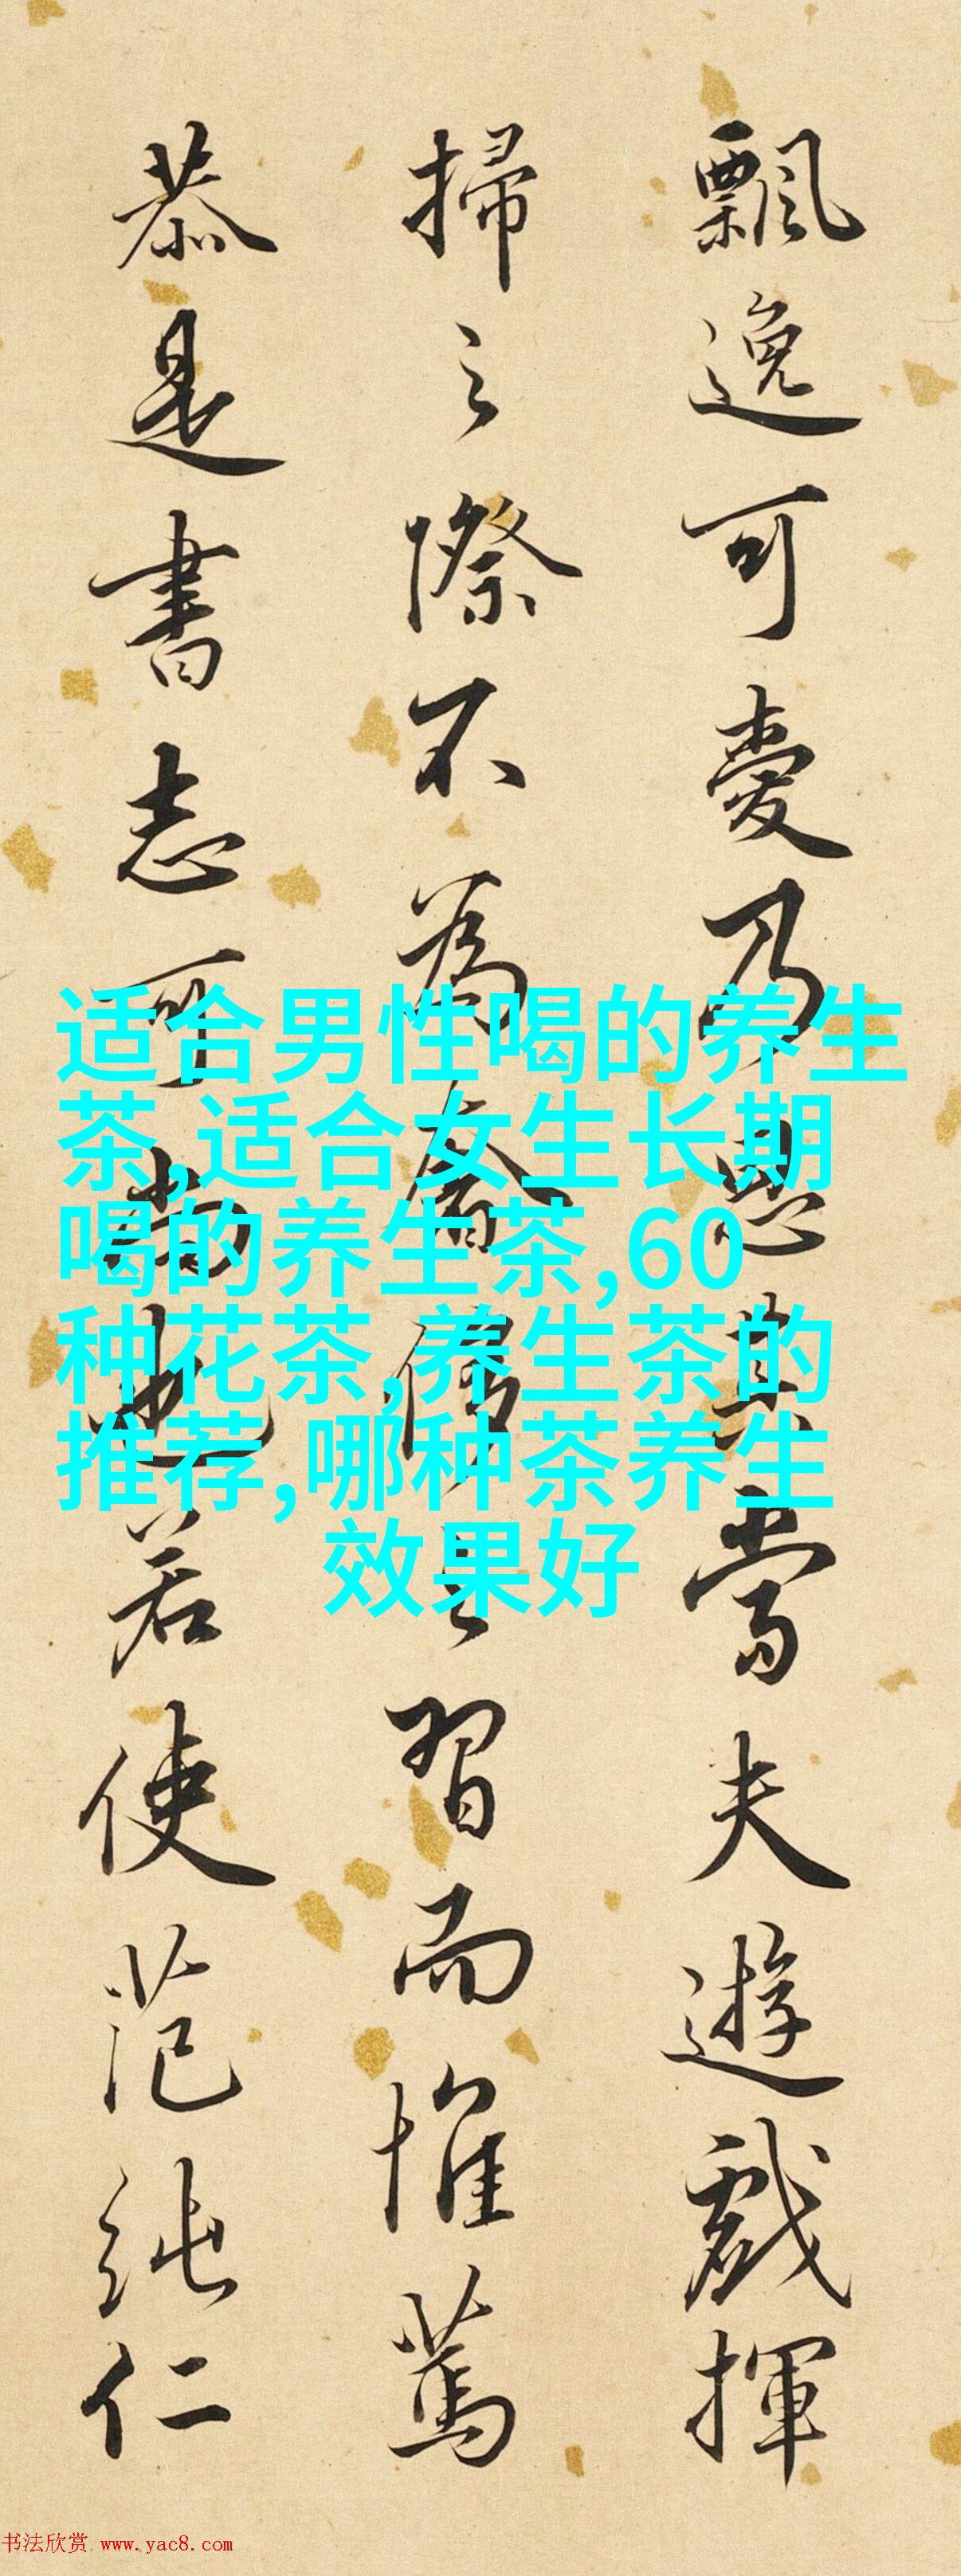 飄逸可愛乃思其當夫遊戲揮
掃之際不爲奢僭之習而惟篤
恭是書志可尚也若使范純仁
适合男性喝的养生
茶,适合女生长期
喝的养生茶,60
种花茶,养生茶的
推荐,哪种茶养生
效果好
书法欣赏 www.yac8.com